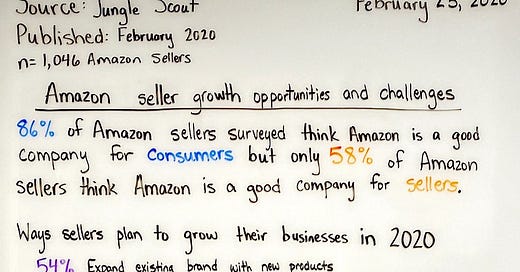 Source: Jungle Scout
February 25, 2020
Published: February 2020
n= 1,046 Amazon Sellers
Amazon seller growth opportunities and challenges
86% of Amazon sellers surveyed think Amazon is a good
company for consumers but only 58% of Amazon
sellers think Amazon is a good company for sellers.
Ways sellers plan to grow their businesses in 2020
54% Expand existing brand with new products